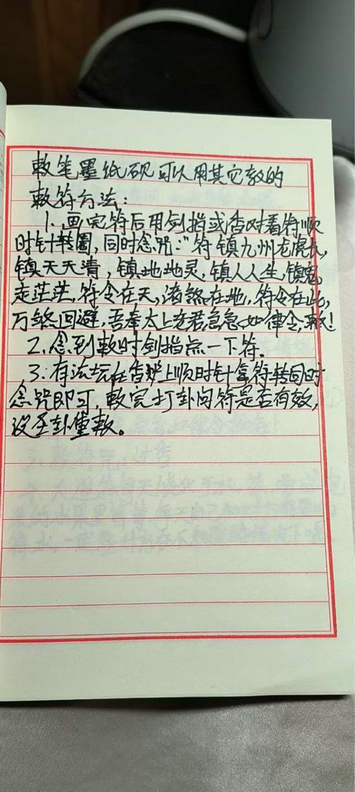 敕笔墨纸砚可以用其它教的
敕符方法:
1. 画完符后用剑指或香对着符顺
时针转圈,同时念咒:"符镇九州龙
镇天天清,镇地地灵,镇人人生,镇鬼
走茫茫,符令在天,诸煞在地,符令在此,
万煞回避,吾奉太上老君急急如律令,敕!
2. 念到敕时剑指点一下符。
3. 有法坛在香炉上顺时针拿符转同时
念咒即可,敕完打卦问符是否有效,
圣卦